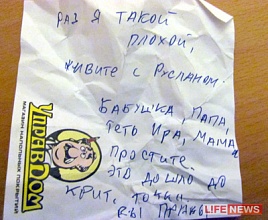 РАЗ Я ТАКОЙ
ПЛОХОЙ,
ЖИВИТЕ С РУСЛАНОМ.
БАБУШКА, ПАПА,
ТЕТЬ ИРА, МАМА
ПРОСТИТЕ.
ЭТО ДОШЛО ДО
КРИТ. ТОЧКИ
УПРАВДОМ
МАГАЗИН НАПОЛЬНЫХ ПОКРЫТИЙ
LIFENEWS